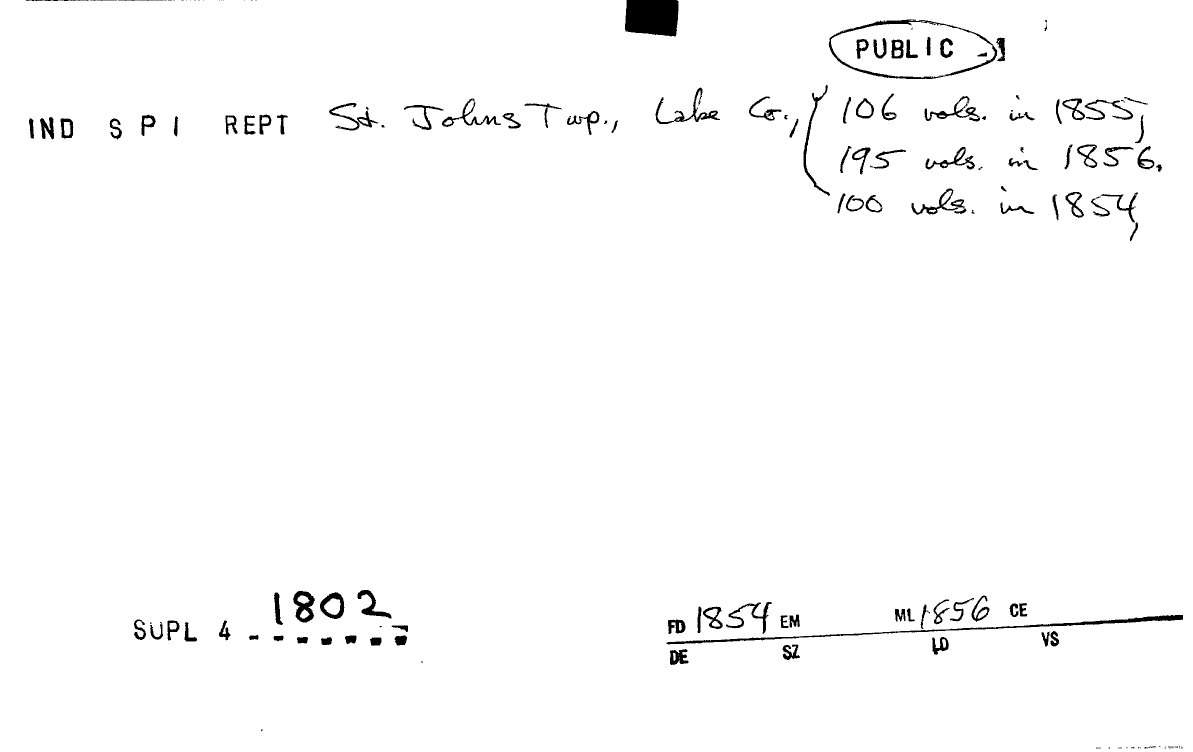 PUBLIC -1
IND S P I REPT St. Johns Twp., Lake Co., 106 vols. in 1855,
195 vols. in 1856.
100 vols. in 1854,
1802
SUPL 4 - - - - - - -
FD 1854 EM ML 1856 CE
DE SZ LD VS